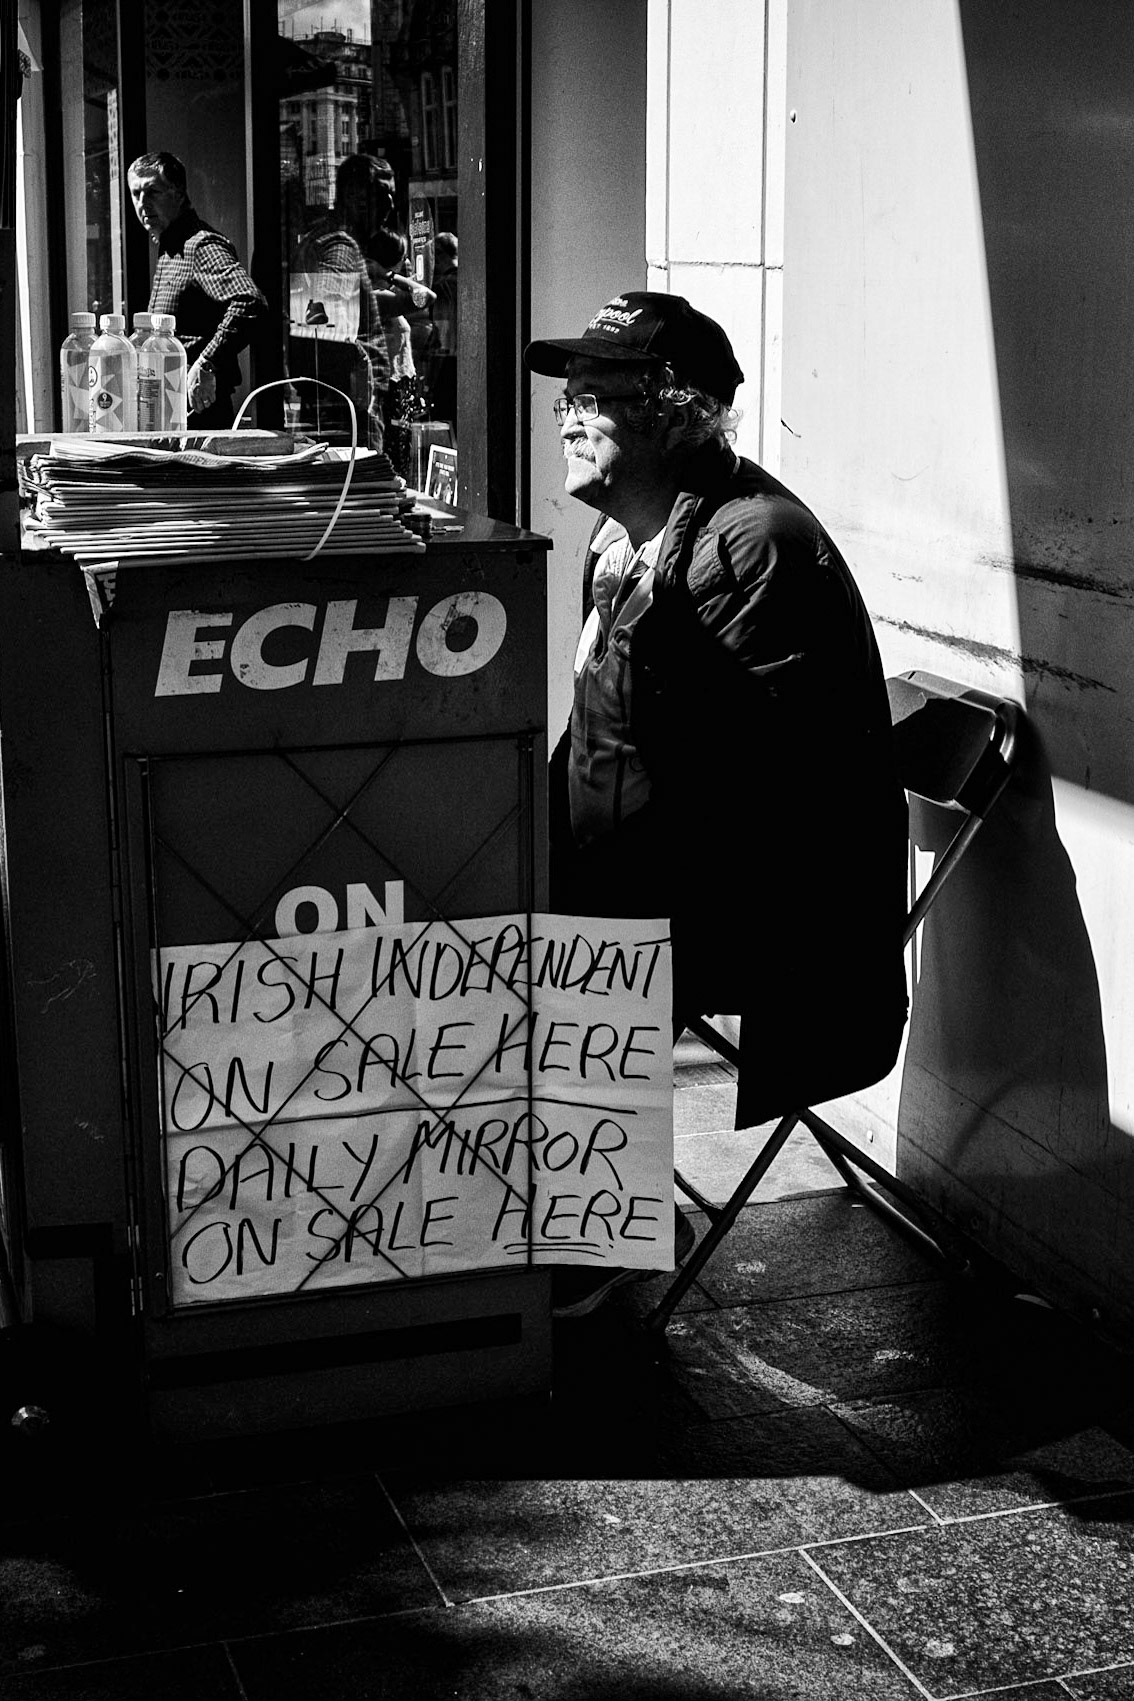 ECHO
ON
IRISH INDEPENDENT
ON SALE HERE
DAILY MIRROR
ON SALE HERE